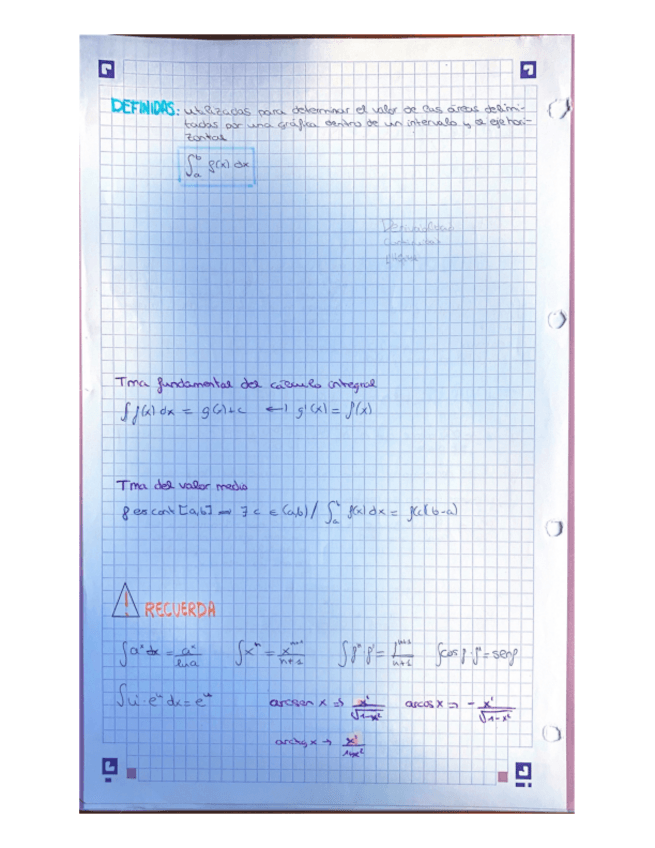 DEFINIDAS: utilizadas para determinar el valor de las áreas delimi-
tadas por una gráfica dentro de un intervalo y el eje hori-
zontal
∫ₐᵇ f(x) dx
Tma fundamental del cálculo integral
∫ f(x) dx = g(x) + c ← g'(x) = f(x)
Tma del valor medio
f es cont [a,b] → ∃ c ∈ (a,b) / ∫ₐᵇ f(x) dx = f(c)(b-a)
RECUERDA
∫aˣ dx = aˣ/lna ∫xⁿ = xⁿ⁺¹/n+1 ∫fⁿ f' = fⁿ⁺¹/n+1 ∫cos f · f' = sen f
∫u' · eᵘ dx = eᵘ arcsen x → x'/√1-x² arcos x → - x'/√1-x²
arctg x → x'/1+x²